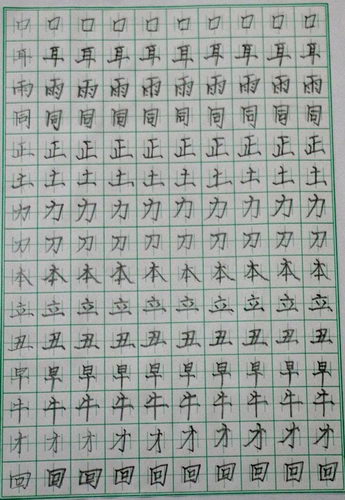 口口口口口口口口口口
耳耳耳耳耳耳耳耳耳耳
雨雨雨雨雨雨雨雨雨雨
同同同同同同同同同同
正正正正正正正正正正
土土土土土土土土土土
力力力力力力力力力力
刀刀刀刀刀刀刀刀刀刀
本本本本本本本本本本
立立立立立立立立立立
丑丑丑丑丑丑丑丑丑丑
早早早早早早早早早早
牛牛牛牛牛牛牛牛牛牛
才才才才才才才才才才
回回回回回回回回回回